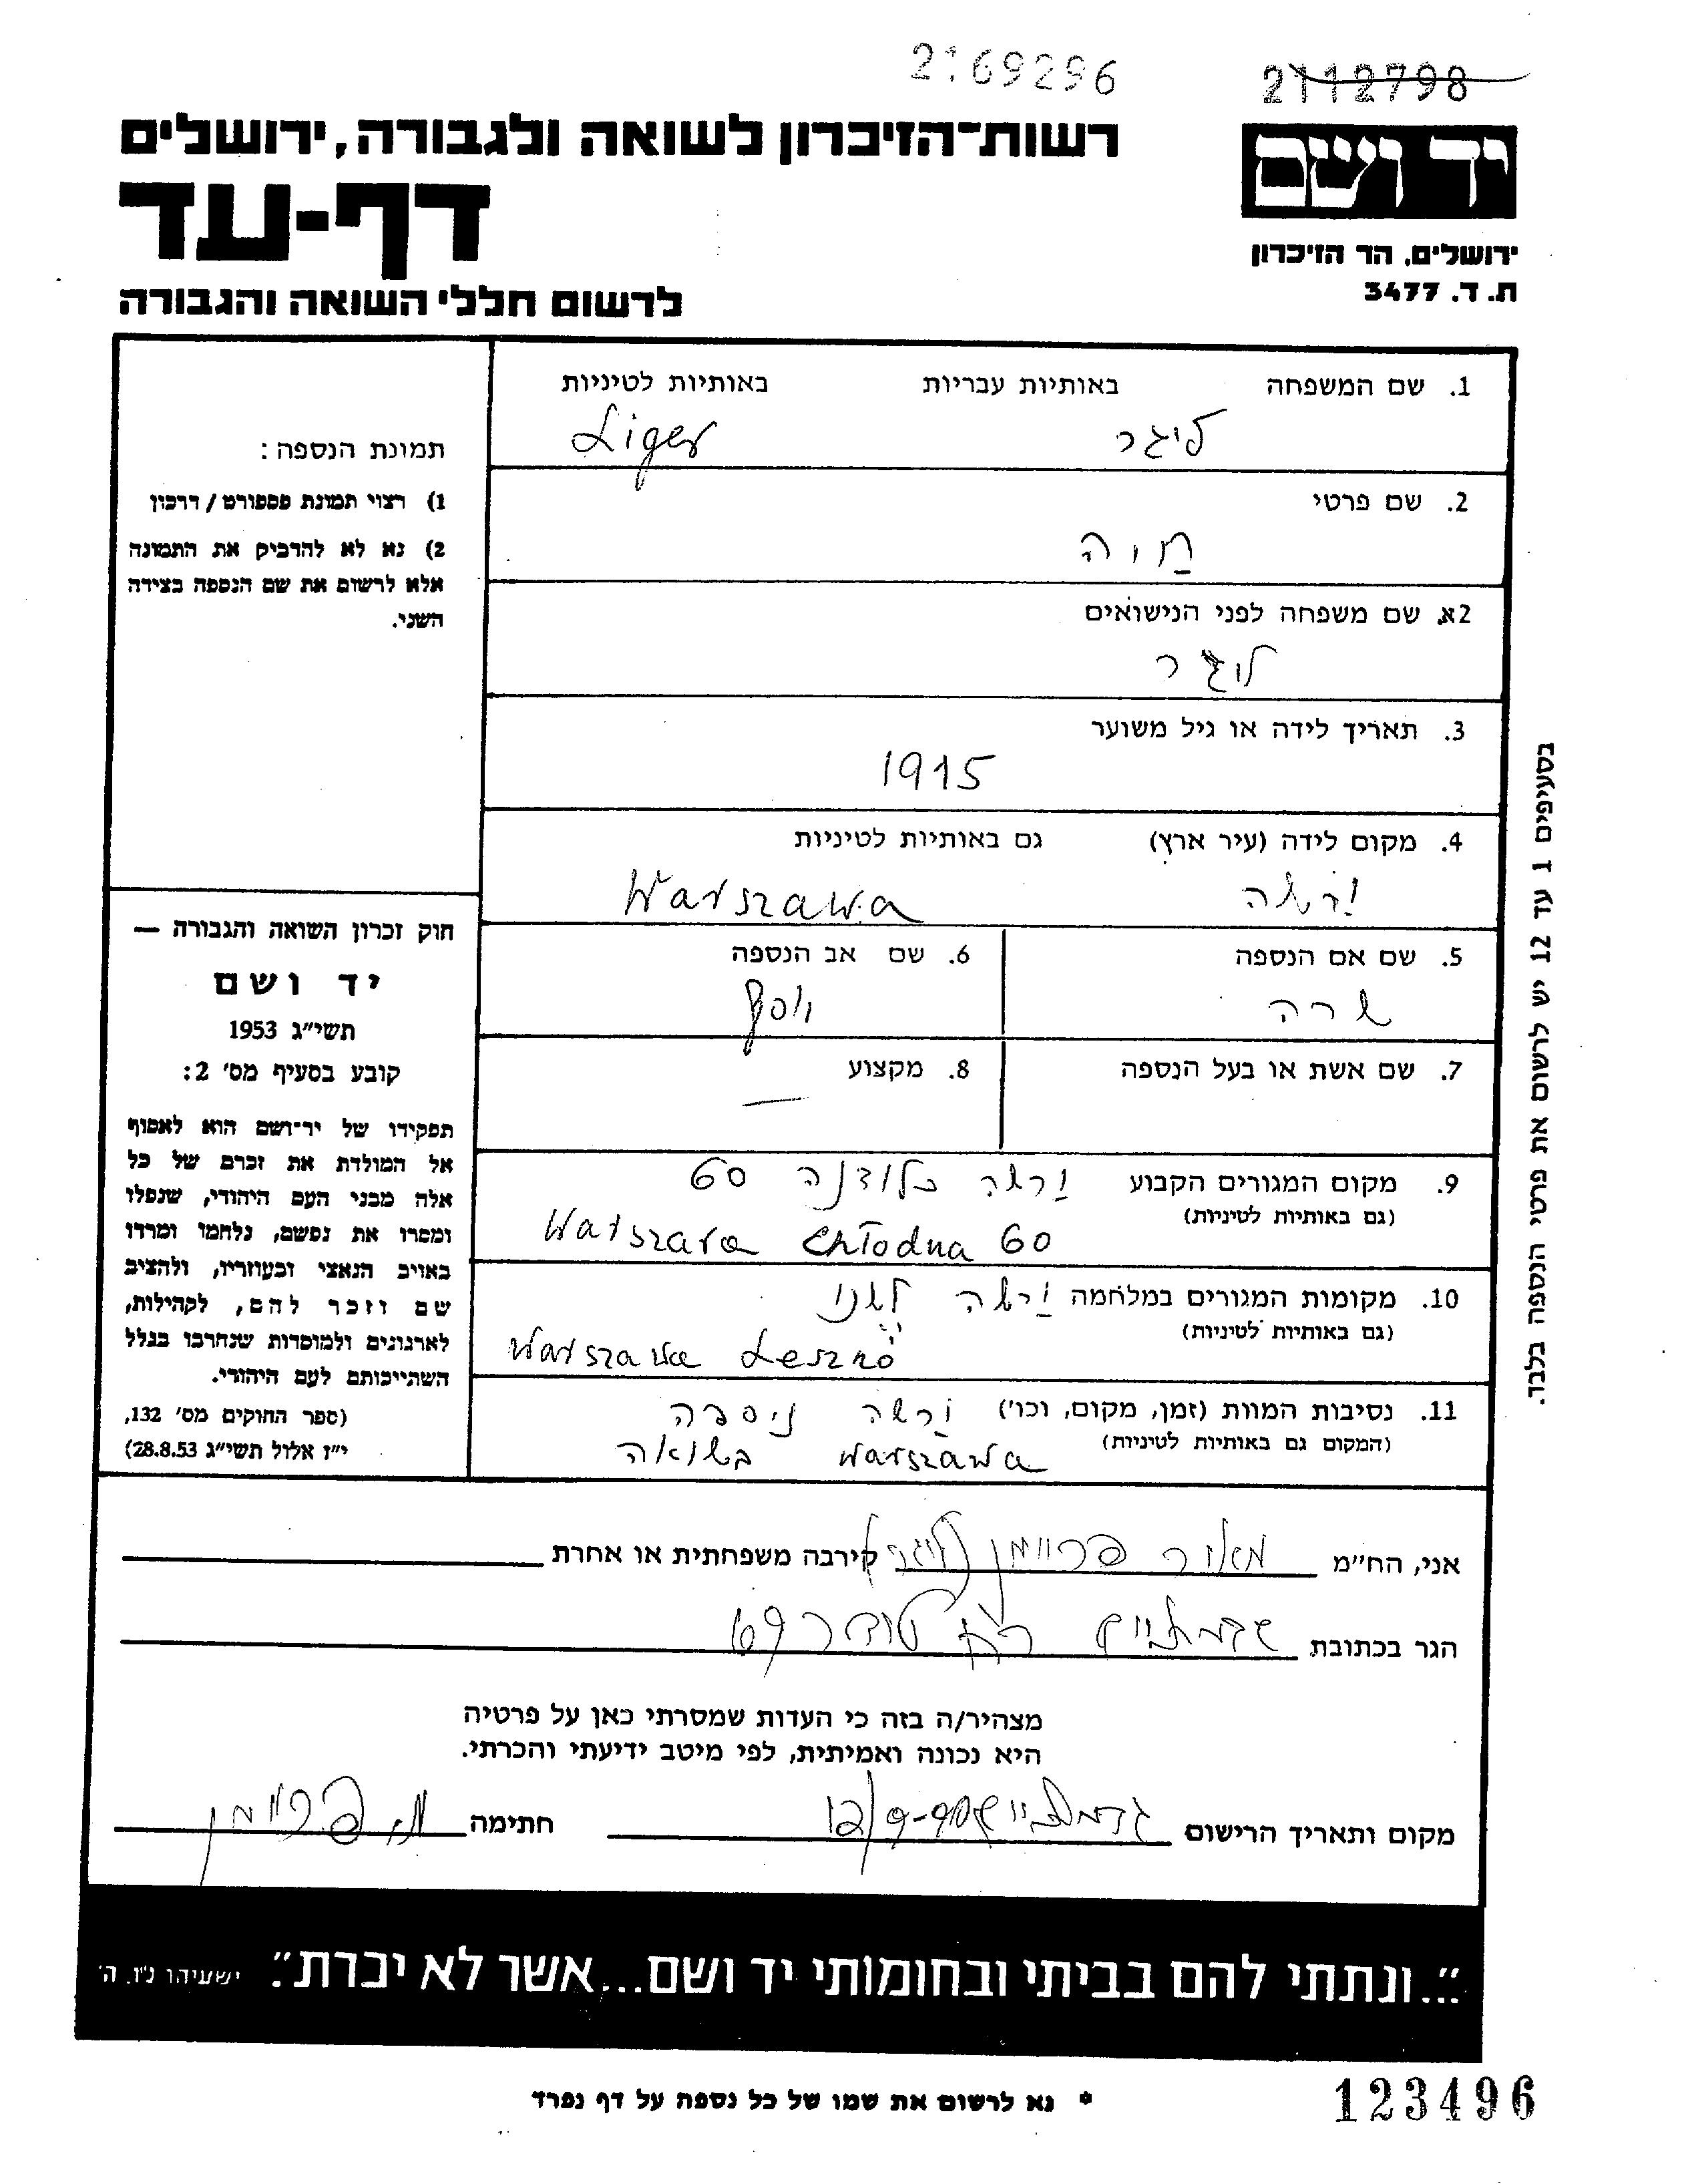 2169296
2112798
יד ושם
רשות־הזיכרון לשואה ולגבורה, ירושלים
דף-עד
ירושלים, הר הזיכרון
ת. ד. 3477
לרשום חללי השואה והגבורה
1. שם המשפחה באותיות עבריות באותיות לטיניות
ליגר Liger
2. שם פרטי
חוה
2א. שם משפחה לפני הנישואים
ליגר
3. תאריך לידה או גיל משוער
1915
4. מקום לידה (עיר ארץ) גם באותיות לטיניות
ורשה Warszawa
5. שם אם הנספה 6. שם אב הנספה
שרה יוסף
7. שם אשת או בעל הנספה 8. מקצוע
—
9. מקום המגורים הקבוע ורשה כלודנה 60
(גם באותיות לטיניות)
Warszawa Chłodna 60
10. מקומות המגורים במלחמה ורשה לשנו
(גם באותיות לטיניות)
Warszawa Leszno
11. נסיבות המוות (זמן, מקום, וכו') ורשה ניספה
(המקום גם באותיות לטיניות) Warszawa בשואה
תמונת הנספה:
1) רצוי תמונת פספורט / דרכון
2) נא לא להדביק את התמונה
אלא לרשום את שם הנספה בצידה
השני.
חוק זכרון השואה והגבורה —
יד ושם
תשי"ג 1953
קובע בסעיף מס' 2:
תפקידו של יד־ושם הוא לאסוף
אל המולדת את זכרם של כל
אלה מבני העם היהודי, שנפלו
ומסרו את נפשם, נלחמו ומרדו
באויב הנאצי ובעוזריו, ולהציב
שם וזכר להם, לקהילות,
לארגונים ולמוסדות שנחרבו בגלל
השתייכותם לעם היהודי.
(ספר החוקים מס' 132,
י"ז אלול תשי"ג 28.8.53)
בסעיפים 1 עד 12 יש לרשום את פרטי הנספה בלבד.
אני, הח"מ מאיר פריימן ליגר קירבה משפחתית או אחרת
הגר בכתובת
מצהיר/ה בזה כי העדות שמסרתי כאן על פרטיה
היא נכונה ואמיתית, לפי מיטב ידיעתי והכרתי.
מקום ותאריך הרישום חתימה מ. פריימן
"...ונתתי להם בביתי ובחומותי יד ושם...אשר לא יכרת". ישעיהו נ"ו, ה'
* נא לרשום את שמו של כל נספה על דף נפרד
123496